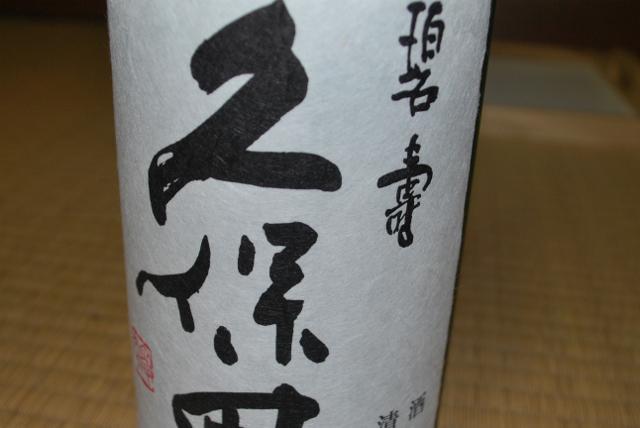 碧寿
久保田
清酒